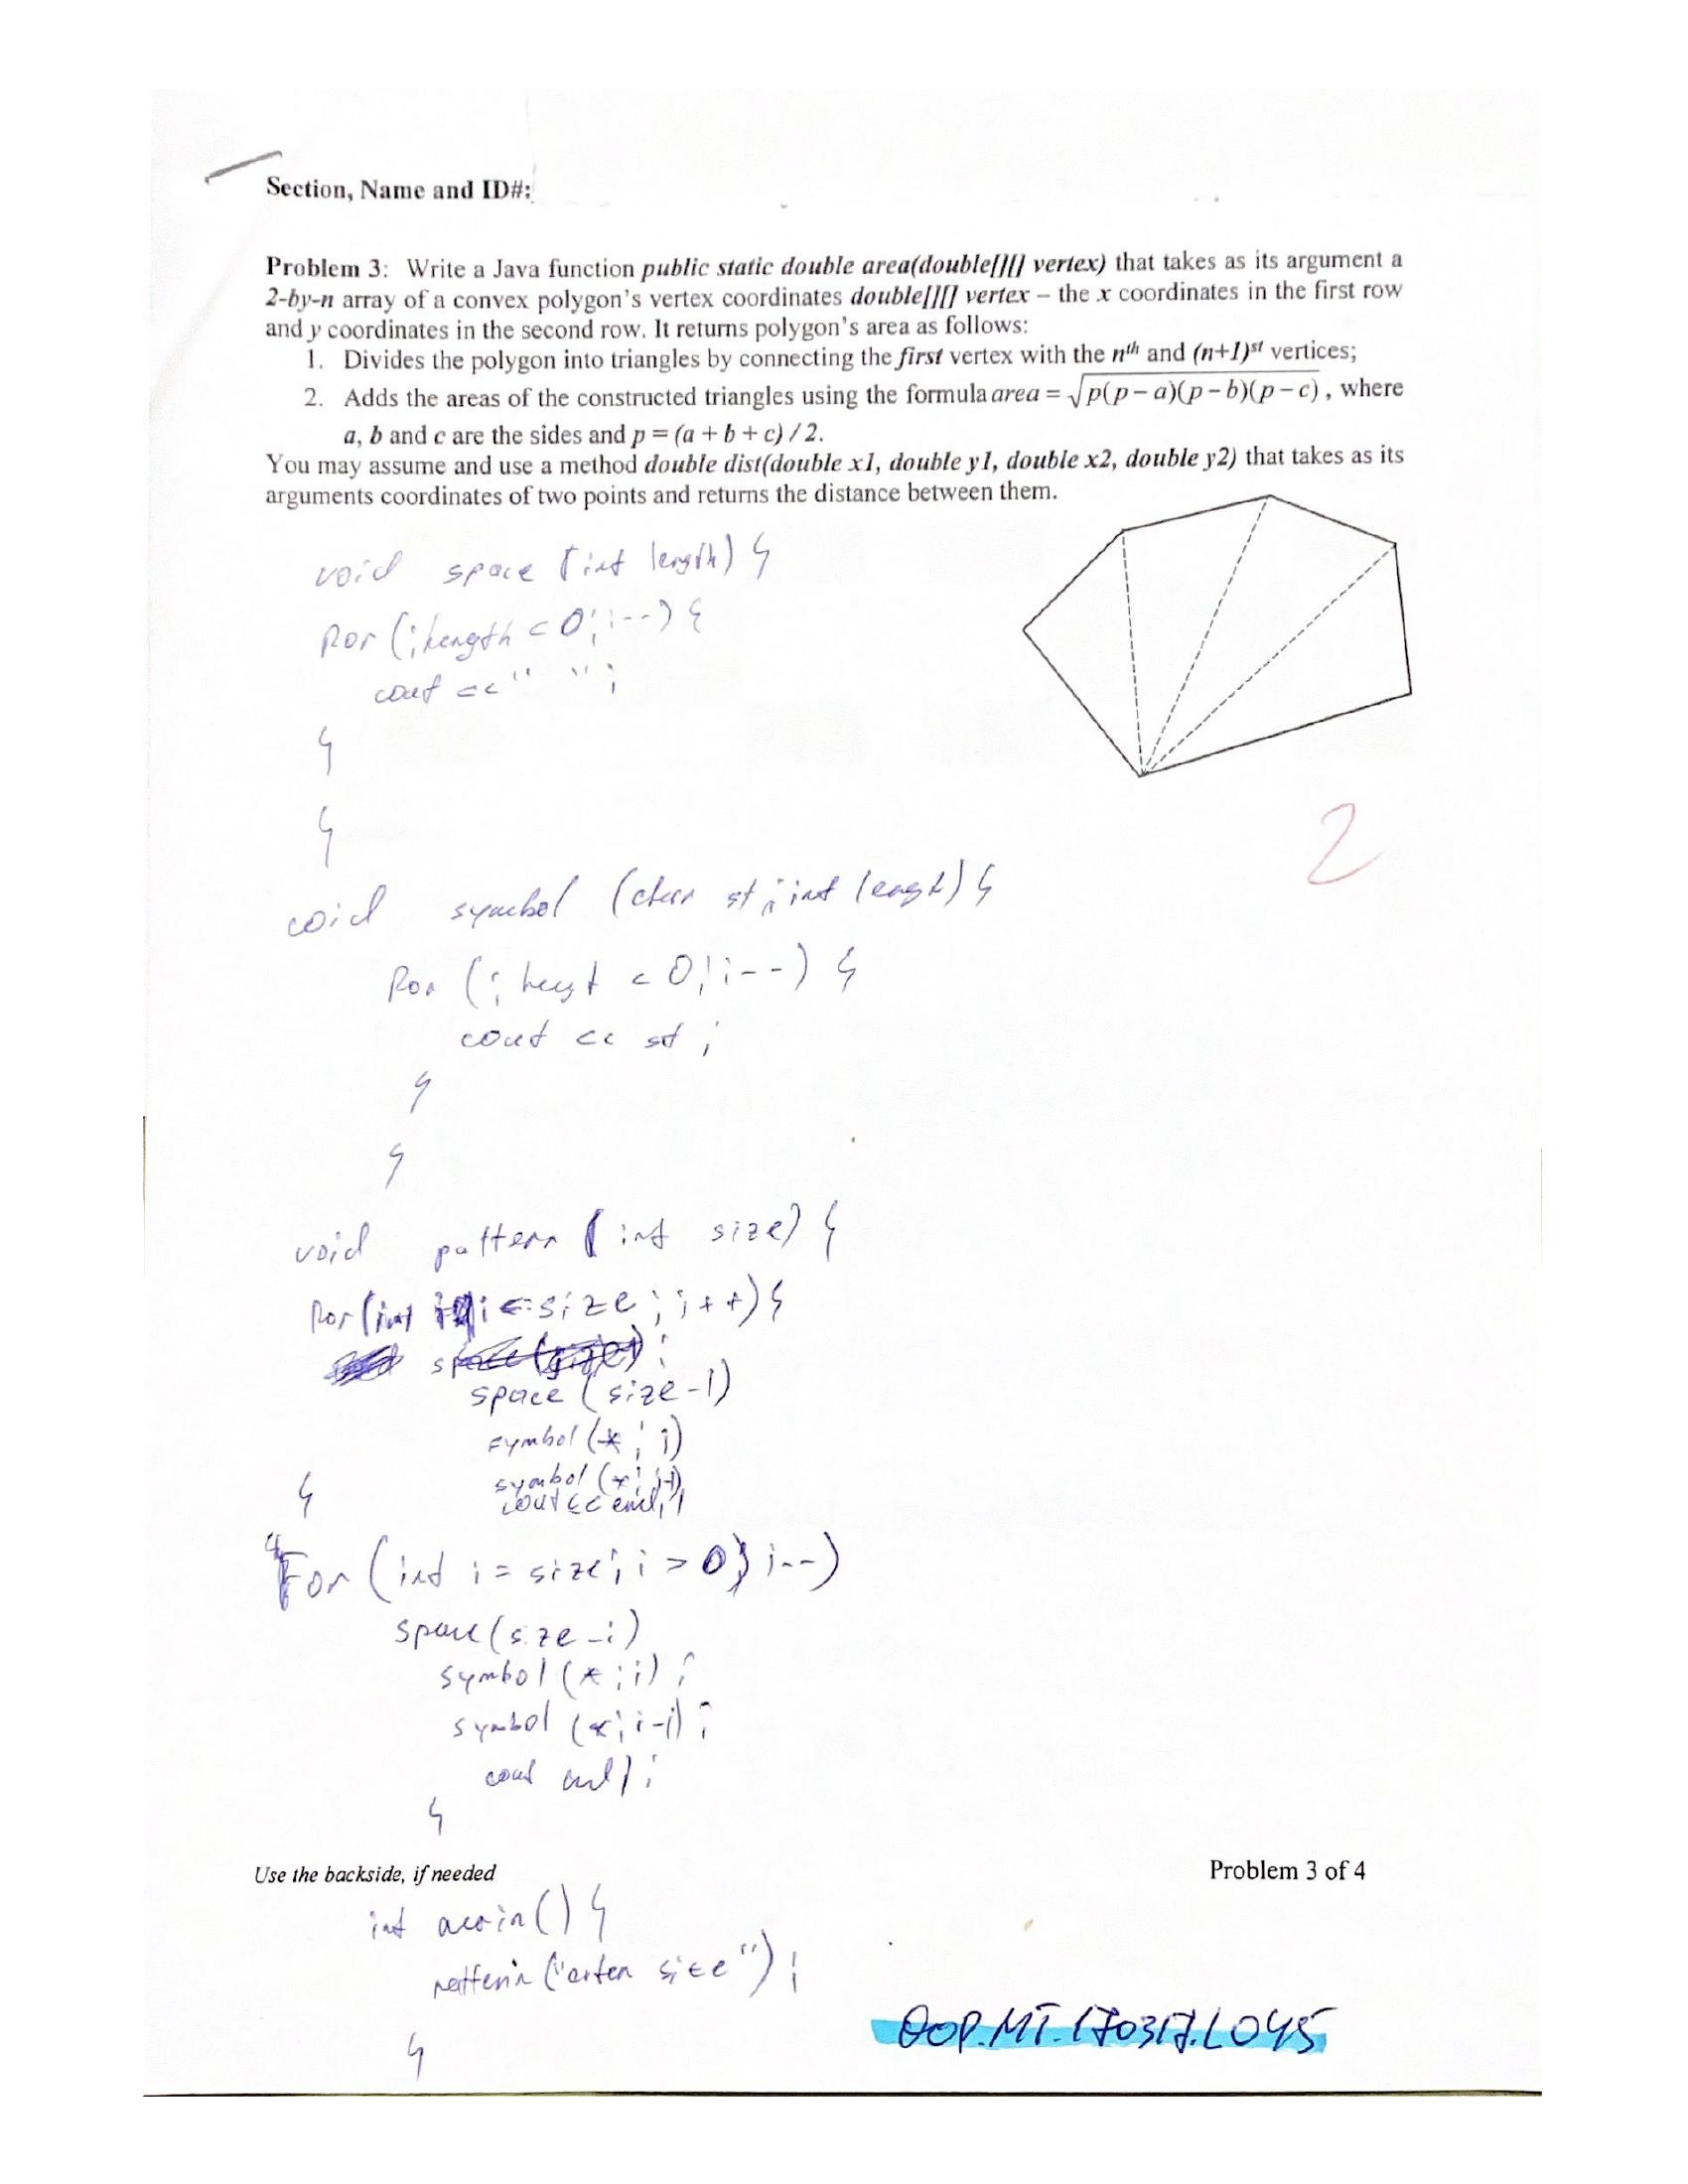 Section, Name and ID#:
Problem 3: Write a Java function public static double area(double[][] vertex) that takes as its argument a
2-by-n array of a convex polygon's vertex coordinates double[][] vertex – the x coordinates in the first row
and y coordinates in the second row. It returns polygon's area as follows:
1. Divides the polygon into triangles by connecting the first vertex with the nth and (n+1)st vertices;
2. Adds the areas of the constructed triangles using the formula area = √p(p – a)(p – b)(p – c) , where
a, b and c are the sides and p = (a + b + c) / 2.
You may assume and use a method double dist(double x1, double y1, double x2, double y2) that takes as its
arguments coordinates of two points and returns the distance between them.
void space (int length) {
for (; length < 0; i--) {
cout << " ";
}
}
2
void symbol (char st; int lengt) {
for (; < 0; i--) {
cout << st ;
}
}
void pattern (int size) {
for (int i <= size ; i++) {
space (size-1)
symbol (*; i)
symbol (*; i-1)
} cout << endl;
For (int i = size; i > 0; i--)
space (size -i)
symbol (*; i) ;
symbol (*; i-1) ;
cout endl ;
}
Use the backside, if needed
Problem 3 of 4
int main() {
size") ;
}
OOP.MT.170317.L045